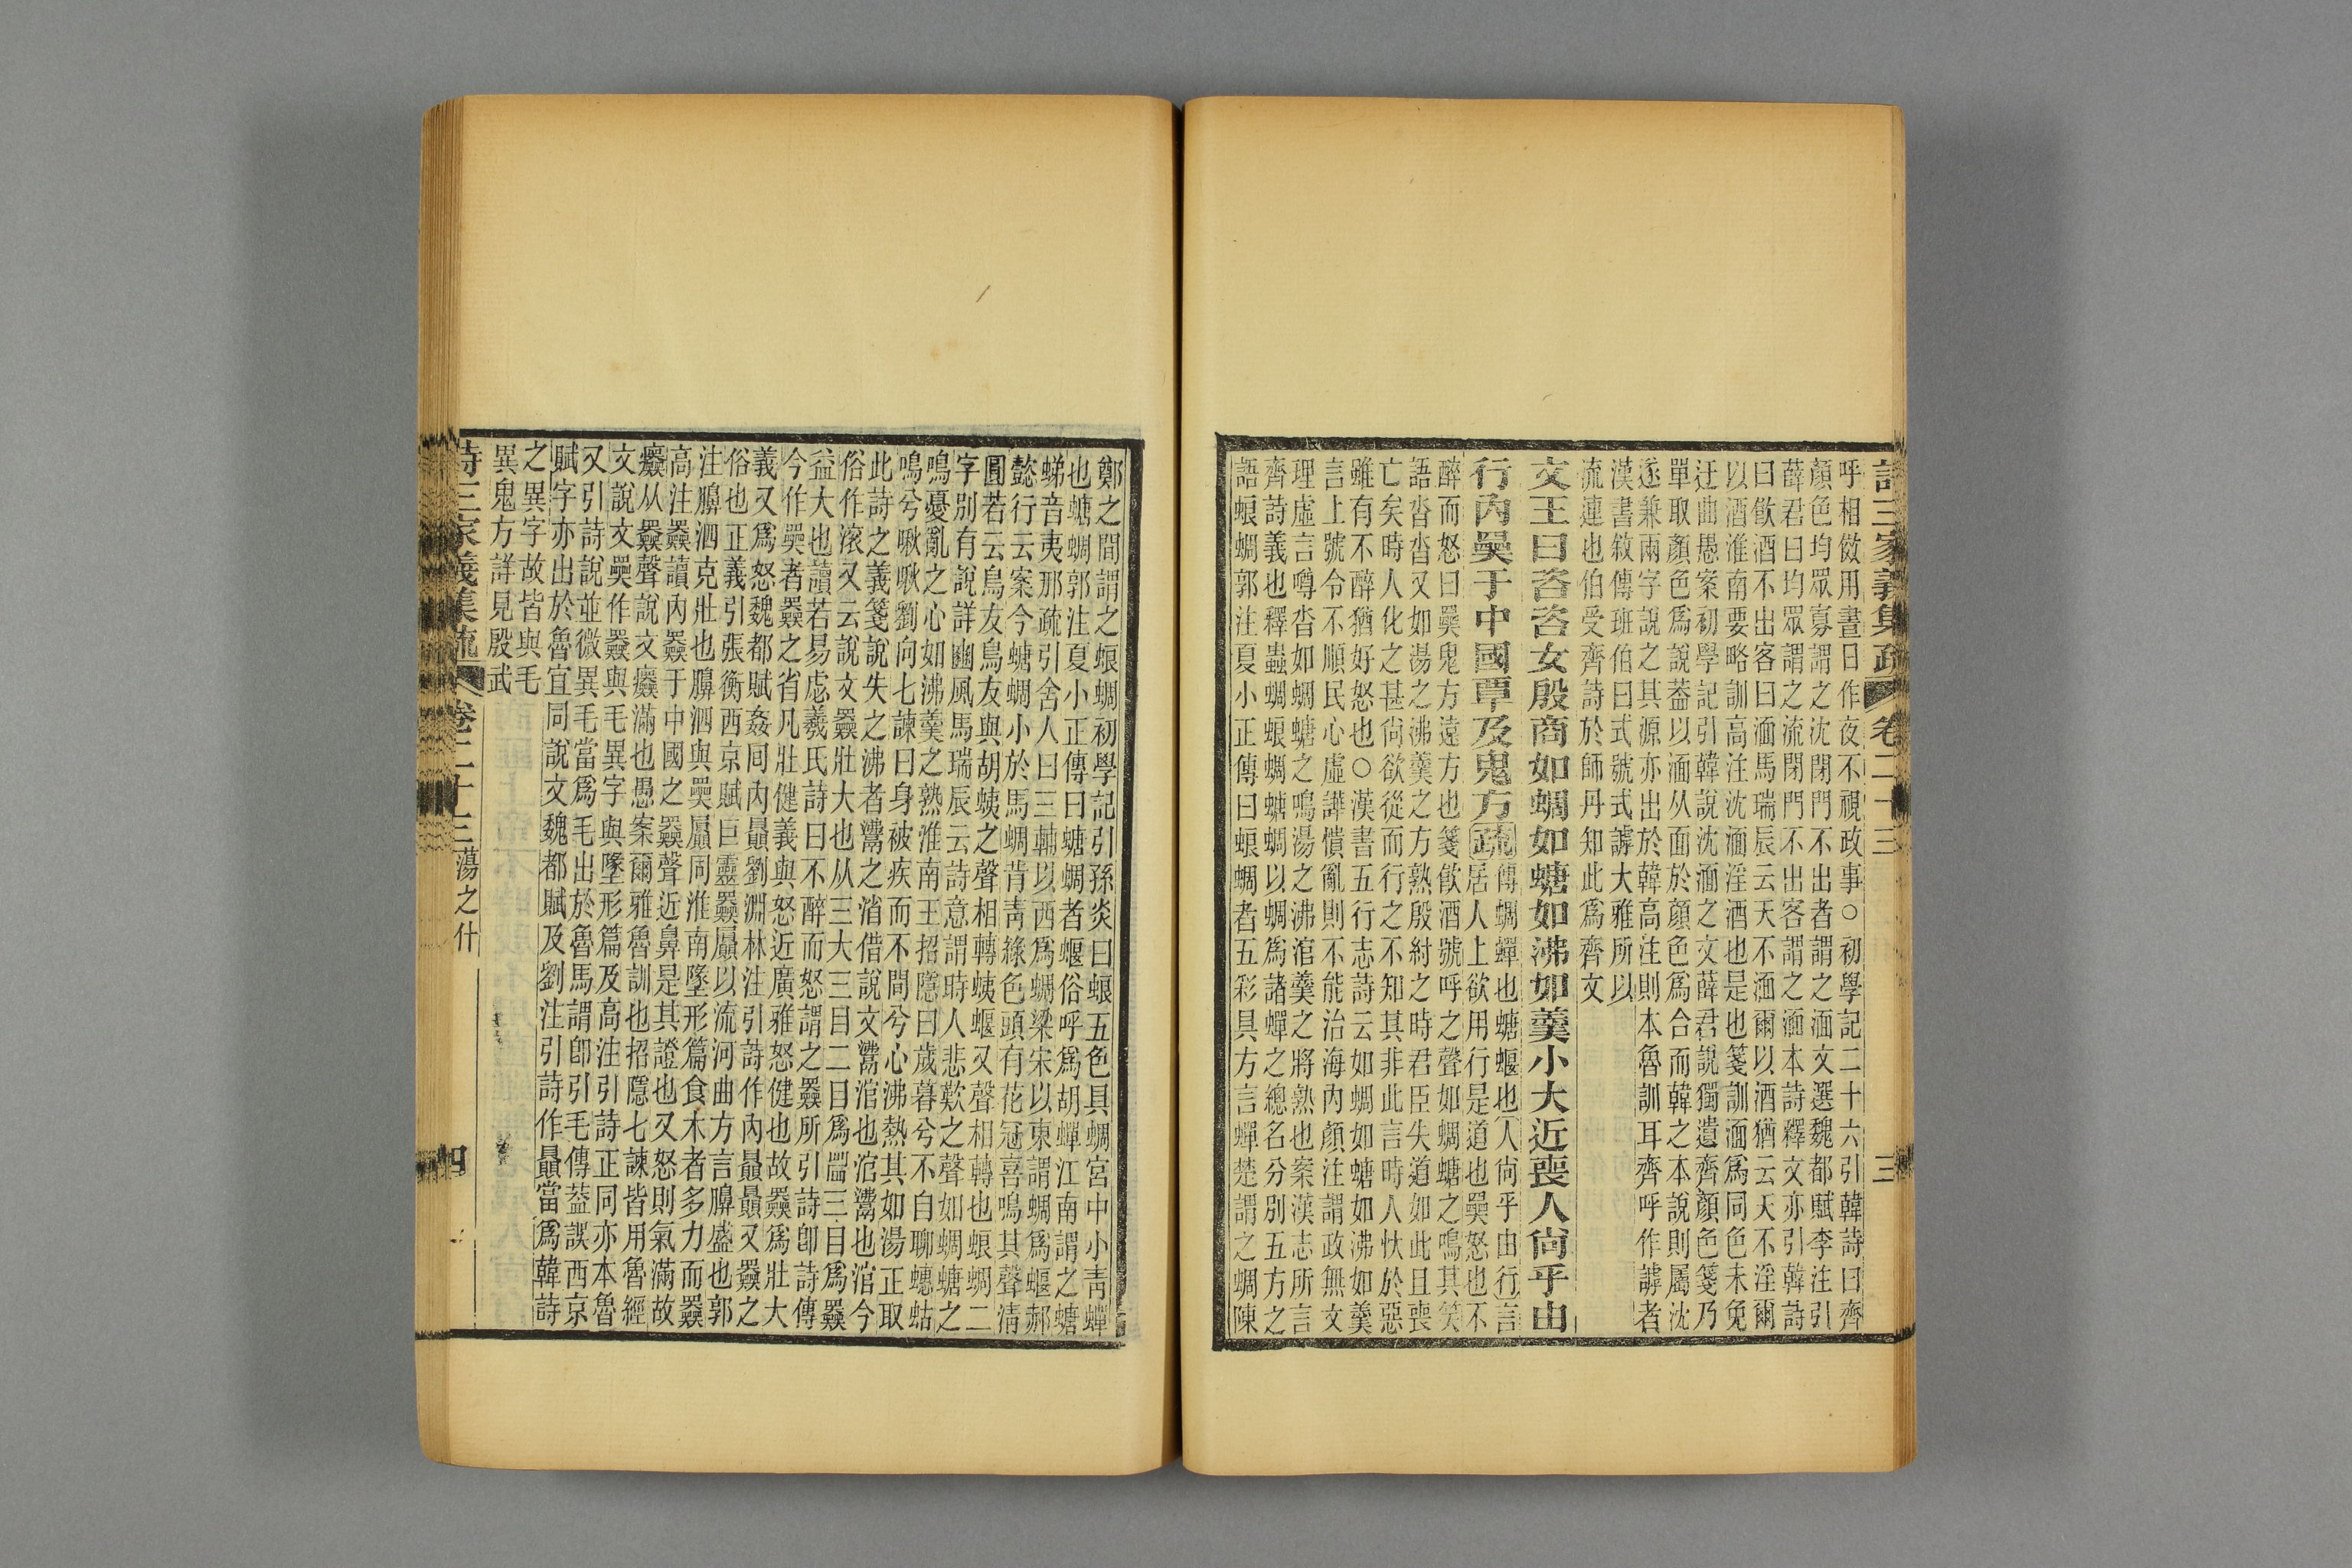 詩三家義集疏 卷二十三 三
呼相傚用晝日作夜不視政事○初學記二十六引韓詩曰齊
顏色均眾寡謂之沈閉門不出者謂之湎文選魏都賦李注引
薛君曰均眾謂之流閉門不出客謂之湎本詩釋文亦引韓詩
曰飮酒不出客曰湎馬瑞辰云天不湎爾以酒猶云天不淫爾
以酒淮南要略訓高注沈湎淫酒也是也箋訓湎爲同色未免
迂曲愚案初學記引韓說沈湎之文薛君說獨遺齊顏色箋乃
單取顏色爲說葢以湎从面於顏色爲合而韓之本說則屬沈
遂兼兩字說之其源亦出於韓高注則本魯訓耳齊呼作謼者
漢書敘傳班伯曰式號式謼大雅所以
流連也伯受齊詩於師丹知此爲齊文
文王曰咨咨女殷商如蜩如螗如沸如羹小大近喪人尙乎由
行內奰于中國覃及鬼方疏
傳蜩蟬也螗蝘也人尙乎由行言
居人上欲用行是道也奰怒也不
醉而怒曰奰鬼方遠方也箋飮酒號呼之聲如蜩螗之鳴其笑
語沓沓又如湯之沸羹之方熟殷紂之時君臣失道如此且喪
亡矣時人化之甚尙欲從而行之不知其非此言時人忕於惡
雖有不醉猶好怒也○漢書五行志詩云如蜩如螗如沸如羹
言上號令不順民心虛譁憒亂則不能治海內顏注謂政無文
理虛言噂沓如蜩螗之鳴湯之沸涫羹之將熟也案漢志所言
齊詩義也釋蟲蜩蜋蜩螗蜩以蜩爲諸蟬之總名分別五方之
語蜋蜩郭注夏小正傳曰蜋蜩者五彩具方言蟬楚謂之蜩陳
鄭之間謂之蜋蜩初學記引孫炎曰蜋五色具蜩宮中小靑蟬
也螗蜩郭注夏小正傳曰螗蜩者蝘俗呼爲胡蟬江南謂之螗
蛦音夷那疏引舍人曰三輔以西爲蜩梁宋以東謂蜩爲蝘郝
懿行云案今螗蜩小於馬蜩背靑綠色頭有花冠喜鳴其聲淸
圓若云烏友烏友與胡蛦之聲相轉蛦蝘又聲相轉也蜋蜩二
字別有說詳豳風馬瑞辰云詩意謂時人悲歎之聲如蜩螗之
鳴憂亂之心如沸羹之熟淮南王招隱曰歲暮兮不自聊蟪蛄
鳴兮啾啾劉向七諫曰身被疾而不間兮心沸熱其如湯正取
此詩之義箋說失之沸者灊之消借說文灊涫也涫灊也涫今
俗作滚又云說文奰壯大也从三大三目二目爲𥄕三目爲奰
益大也讀若易虙羲氏詩曰不醉而怒謂之奰所引詩卽詩傳
今作奰者奰之省凡壯健義與怒近廣雅怒健也故奰爲壯大
義又爲怒魏都賦姦回內贔劉淵林注引詩作內贔贔又奰之
俗也正義引張衡西京賦巨靈奰屭以流河曲方言膞盛也郭
注膞泗克壯也膞泗與奰屭同淮南墜形篇食木者多力而奰
高注奰讀內奰于中國之奰聲近鼻是其證也又怒則氣滿故
癭从奰聲說文癭滿也愚案爾雅魯訓也招隱七諫皆用魯經
文說文奰作奰與毛異字與墜形篇及高注引詩正同亦本魯
又引詩說並微異毛當爲毛出於魯馬謂卽引毛傳葢誤西京
賦字亦出於魯宜同說文魏都賦及劉注引詩作贔當爲韓詩
之異字故皆與毛
異鬼方詳見殷武
詩三家義集疏 卷二十三 蕩之什 四